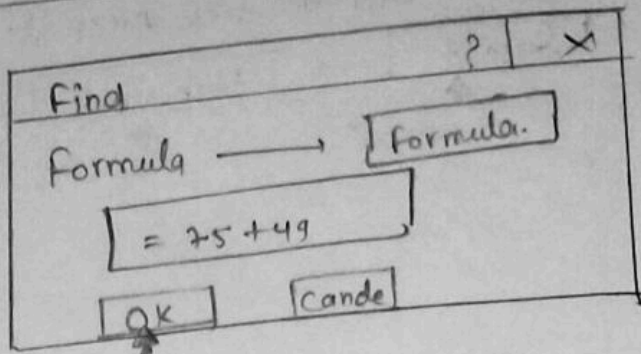 Find ? X
Formula → Formula.
= 75 + 49
OK Cancle